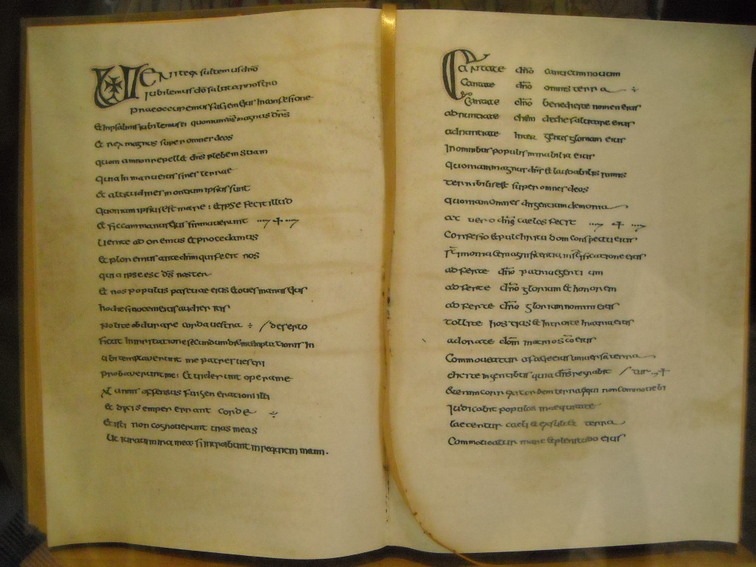 VENITE exsultemus dño
Iubilemus dõ salutari nostro
praeoccupemus faciem eius in confessione
et in psalmis iubilemus ei quoniam dš magnus dñs
et rex magnus super omnes deos
quoniam non repellet dñs plebem suam
quia in manu eius fines terrae
et altitudines montium ipsius sunt
quoniam ipsius est mare et ipse fecit illud
et siccam manus eius
Venite adoremus et procedamus
et ploremus ante dñm qui fecit nos
quia ipse est dš noster
et nos populus pascuae eius et oues manus eius
hodie si uocem eius audieritis
Nolite obdurare corda uestra deserto
sicut in inritatione secundum diem temptationis in
ubi temptauerunt me patres uestri
probauerunt me et uiderunt opera me
XL annis offensus fui generationi illi
et dixi semper errant corde
et isti non cognouerunt uias meas
ut iuraui in ira mea si introibunt in requiem meam.
CANTATE dño canticum nouum
Cantate dño omnis terra
Cantate dño benedicite nomen eius
adnuntiate diem de die salutare eius
adnuntiate inter gentes gloriam eius
In omnibus populis mirabilia eius
Quoniam magnus dñs et laudabilis nimis
terribilis est super omnes deos
quoniam omnes dii gentium demonia
at uero dñs caelos fecit
Confessio et pulchritudo in conspectu eius
scimonia et magnificentia in scificatione eius
adferte dño patriae gentium
adferte dño gloriam et honorem
adferte dño gloriam nomini eius
tollite hostias et introite in atria eius
adorate dñm in atrio sco eius
Commoueatur a facie eius uniuersa terra
dicite in gentibus quia dñs regnabit
etenim correxit orbem terrae qui non commouebitur
Iudicabit populos in aequitate
laetentur caeli et exultet terra
Commoueatur mare et plenitudo eius